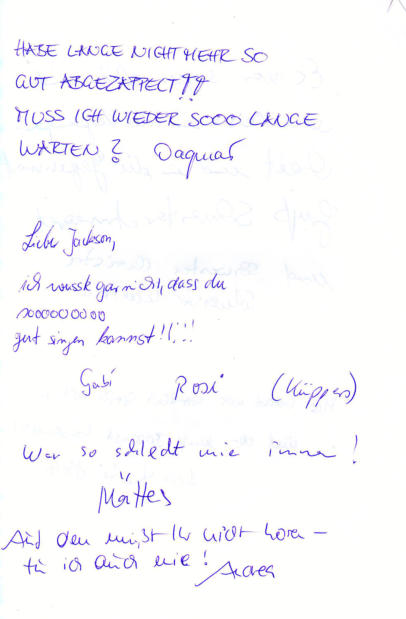 HABE LANGE NICHT MEHR SO
GUT ABGEZAPPELT!!
MUSS ICH WIEDER SOOO LANGE
WARTEN? Dagmar
Liebe Jackson,
ich wusste gar nicht, dass du
sooooooooo
gut singen kannst!!!!!
Gabi Rosi (Küppers)
War so schlecht wie immer!
Mattes
Auf den müsst Ihr nicht hören –
tu ich auch nie! Andrea